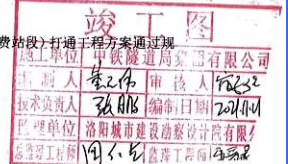 竣工图
费站段）打通工程方案通过规
施工单位 中铁隧道局集团有限公司
编制人 审核人
技术负责人 编制日期 2021.11.11
监理单位 洛阳城市建设勘察设计院有限
总监理工程师 监理工程师